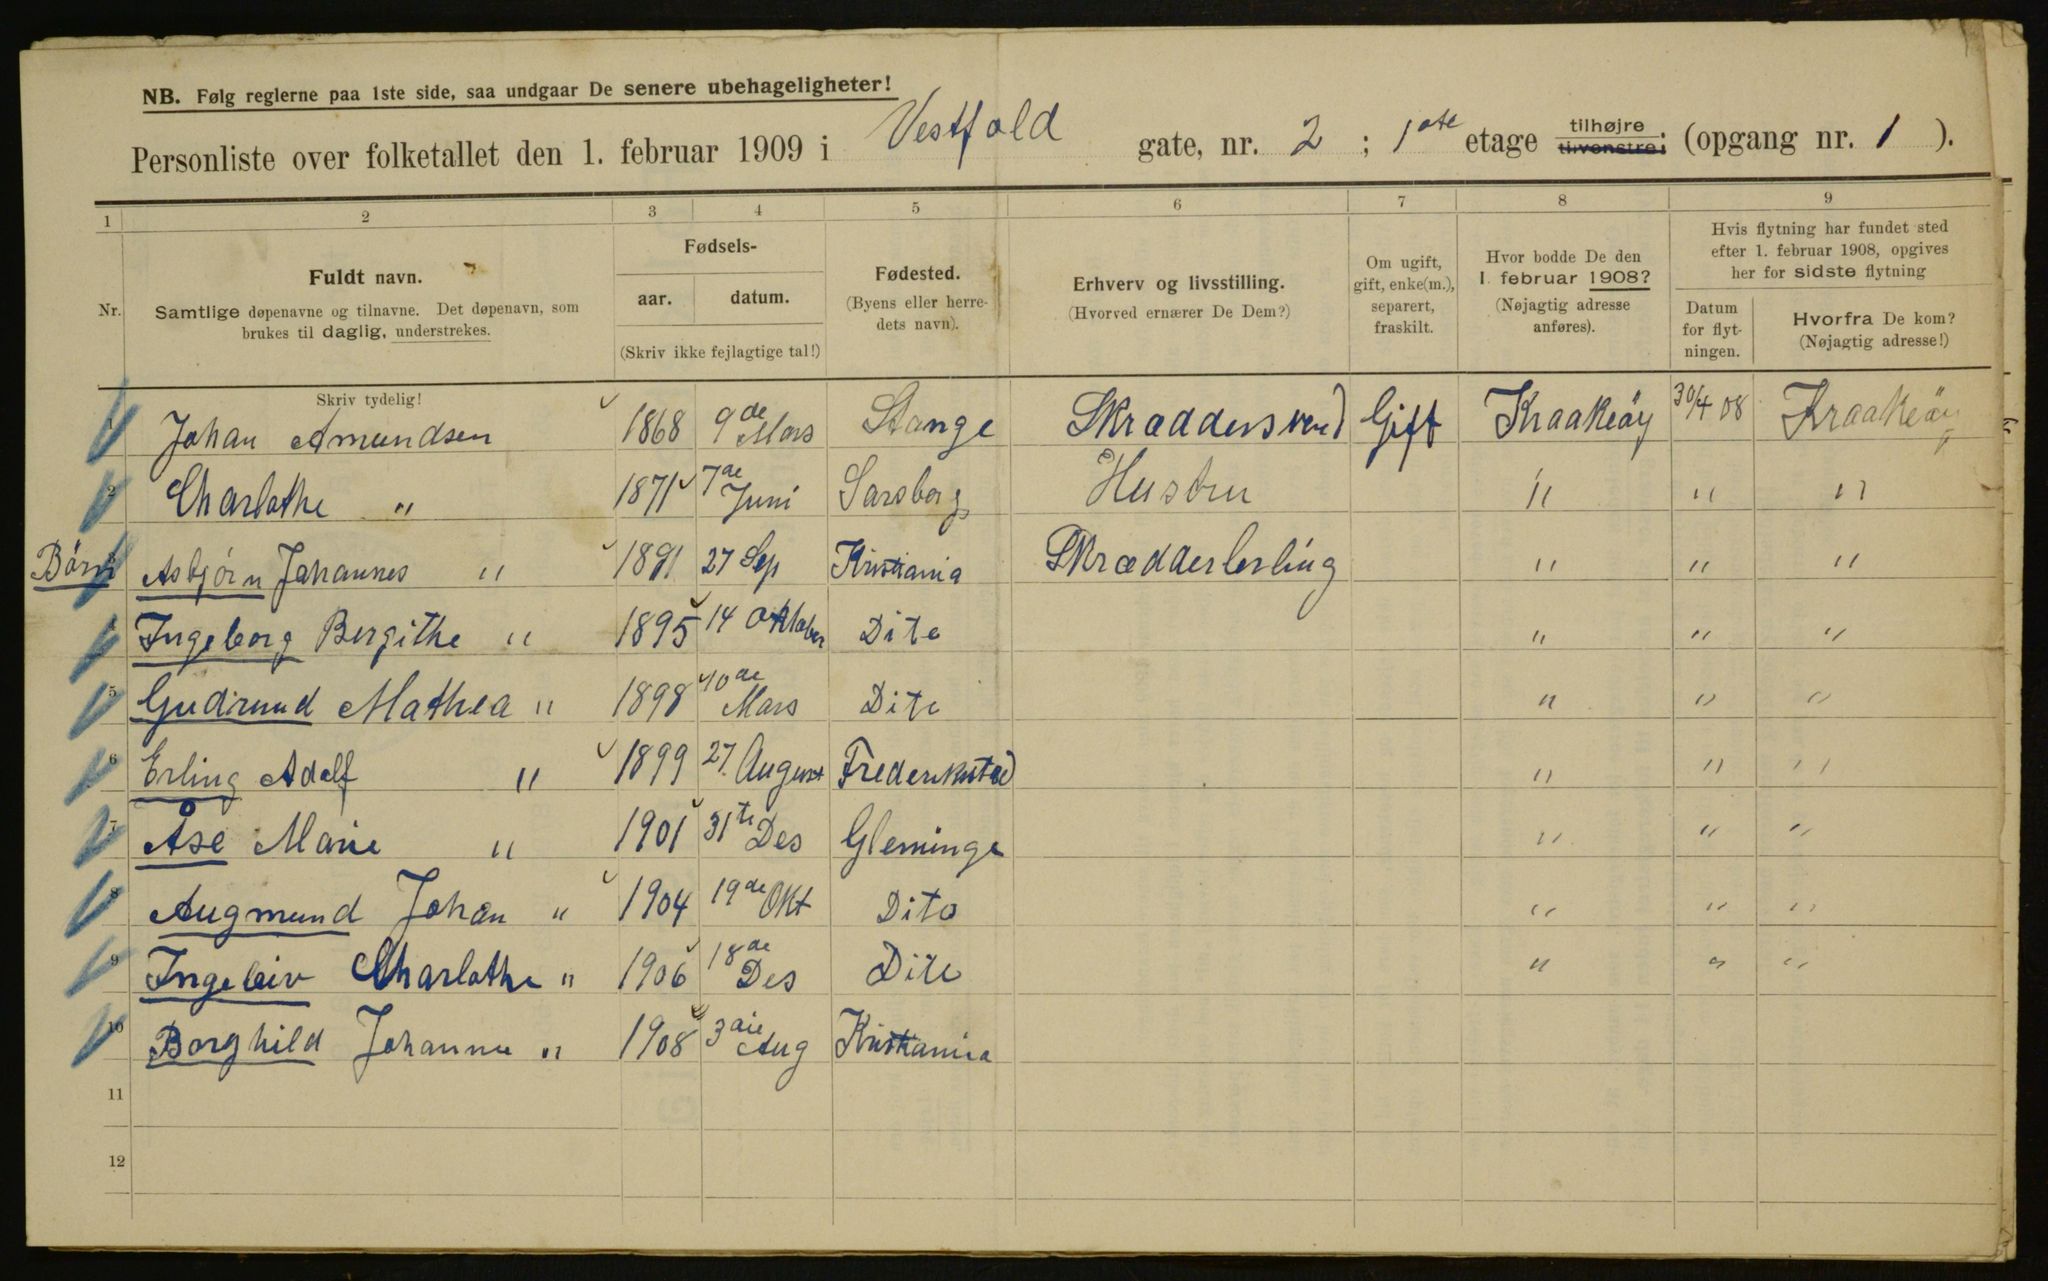 NB. Følg reglerne paa 1ste side, saa undgaar De senere ubehageligheter!
Personliste over folketallet den 1. februar 1909 i Vestfold gate, nr. 2 ; 1ste etage tilhøjre tilvenstre; (opgang nr. 1 ).
1 2 3 4 5 6 7 8 9
Nr.
Fuldt navn.
Samtlige døpenavne og tilnavne. Det døpenavn, som
brukes til daglig, understrekes.
Skriv tydelig!
Fødsels-
aar. datum.
(Skriv ikke fejlagtige tal!)
Fødested.
(Byens eller herre-
dets navn).
Erhverv og livsstilling.
(Hvorved ernærer De Dem?)
Om ugift,
gift, enke(m.),
separert,
fraskilt.
Hvor bodde De den
1. februar 1908?
(Nøjagtig adresse
anføres).
Hvis flytning har fundet sted
efter 1. februar 1908, opgives
her for sidste flytning
Datum
for flyt-
ningen.
Hvorfra De kom?
(Nøjagtig adresse!)
1 Johan Amundsen 1868 9de Mars Stange Skræddersvend Gift Kraakeöy 30/4 08 Kraakeöy
2 Charlothe " 1871 7de Juni Sarsborg Hustru " " "
Börn 3 Asbjørn Johannes " 1891 27 Sep Kristiania Skrædderlerling " " "
4 Ingeborg Bergithe " 1895 14 Oktober Dito " " "
5 Gudrund Mathea " 1898 10de Mars Dito " " "
6 Erling Adolf " 1899 27. August Frederikstad " " "
7 Åse Marie " 1901 31te Des Gleminge " " "
8 Augmund Johan " 1904 19de Okt Dito " " "
9 Ingeleiv Charlothe " 1906 18de Des Dito " " "
10 Borghild Johanne " 1908 3die Aug Kristiania
11
12